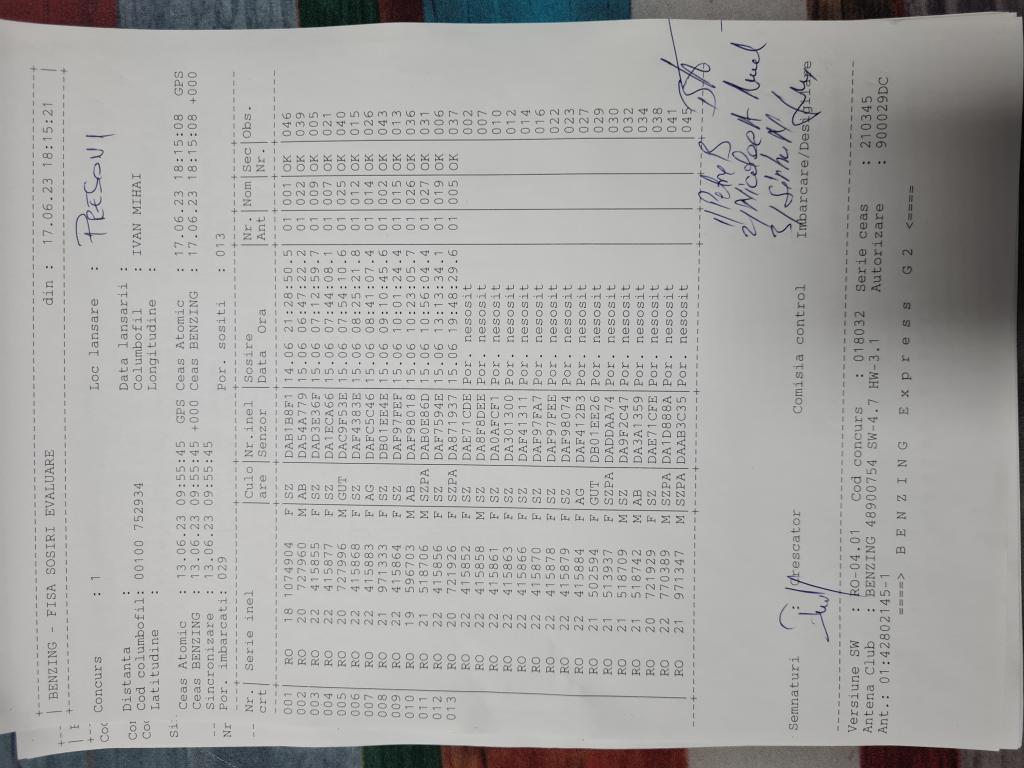 +------------------------------------------------------------+
| BENZING - FISA SOSIRI EVALUARE din : 17.06.23 18:15:21 |
+------------------------------------------------------------+
Concurs : 1 Loc lansare : PRESOV 1
Distanta : Data lansarii :
Cod columbofil: 00100 752934 Columbofil : IVAN MIHAI
Latitudine : Longitudine :
Ceas Atomic : 13.06.23 09:55:45 GPS Ceas Atomic : 17.06.23 18:15:08 GPS
Ceas BENZING : 13.06.23 09:55:45 +000 Ceas BENZING : 17.06.23 18:15:08 +000
Sincronizare : 13.06.23 09:55:45
Por. imbarcati: 029 Por. sositi : 013
Nr. | Serie inel |Culo|Nr.inel |Sosire |Nr.|Nom|Sec|Obs.
crt| |are |Senzor |Data Ora |Ant| |Nr.|
001 | RO 18 1074904 F SZ |DAB1B8F1|14.06 21:28:50.5| 01|001|OK |046
002 | RO 20 727960 M AB |DA54A779|15.06 06:47:22.2| 01|022|OK |039
003 | RO 22 415855 F SZ |DAD3E36F|15.06 07:12:59.7| 01|009|OK |005
004 | RO 22 415877 F SZ |DA1ECA66|15.06 07:44:08.1| 01|007|OK |021
005 | RO 20 727996 M GUT |DAC9F53E|15.06 07:54:10.6| 01|025|OK |040
006 | RO 22 415868 F SZ |DAF4383E|15.06 08:25:21.8| 01|012|OK |015
007 | RO 22 415883 F AG |DAFC5C46|15.06 08:41:07.4| 01|014|OK |026
008 | RO 21 971333 F SZ |DB01EE4E|15.06 09:10:45.6| 01|002|OK |043
009 | RO 22 415864 F SZ |DAF97FEF|15.06 10:01:24.4| 01|015|OK |013
010 | RO 19 596703 M AB |DAF98018|15.06 10:23:05.7| 01|026|OK |036
011 | RO 21 518706 M SZPA|DAB0E86D|15.06 10:56:04.4| 01|027|OK |031
012 | RO 22 415856 F SZ |DAF7594E|15.06 13:13:34.1| 01|019|OK |006
013 | RO 20 721926 F SZPA|DA871937|15.06 19:48:29.6| 01|005|OK |037
| RO 22 415852 F SZ |DAE71CDE|Por. nesosit | | | |002
| RO 22 415858 M SZ |DA8F8DEE|Por. nesosit | | | |007
| RO 22 415861 F SZ |DA0AFCF1|Por. nesosit | | | |010
| RO 22 415863 F SZ |DA301300|Por. nesosit | | | |012
| RO 22 415866 F SZ |DAF41311|Por. nesosit | | | |014
| RO 22 415870 F SZ |DAF97FA7|Por. nesosit | | | |016
| RO 22 415878 F SZ |DAF97FEE|Por. nesosit | | | |022
| RO 22 415879 F SZ |DAF98074|Por. nesosit | | | |023
| RO 22 415884 F AG |DAF412B3|Por. nesosit | | | |027
| RO 21 502594 F GUT |DB01EE26|Por. nesosit | | | |029
| RO 21 513937 F SZPA|DADDAA74|Por. nesosit | | | |030
| RO 21 518709 M SZ |DA9F2C47|Por. nesosit | | | |032
| RO 21 518742 M AB |DA3A1359|Por. nesosit | | | |034
| RO 20 721929 F SZ |DAE71CFE|Por. nesosit | | | |038
| RO 22 770389 M SZPA|DA1D888A|Por. nesosit | | | |041
| RO 21 971347 M SZPA|DAAB3C35|Por. nesosit | | | |045
1/ Petre B
2/ Nicolaescu
3/
Semnaturi : Crescator Comisia control Imbarcare/Desigilare
Versiune SW : RO-04.01 Cod concurs : 018032 Serie ceas : 210345
Antena Club : BENZING 48900754 SW-4.7 HW-3.1 Autorizare : 900029DC
Ant.: 01:42802145-1
====> B E N Z I N G E x p r e s s G 2 <====